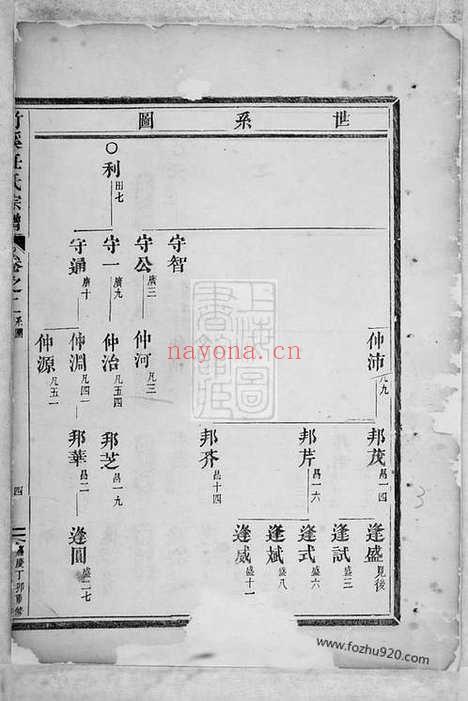 世系圖
仲沛 凡九
邦茂 昌一四
逢盛 見後
逢試 盛三
邦芹 昌一六
逢式 盛六
逢斌 盛八
逢威 盛十一
邦芥 昌十四
守智
守公 廣三
仲河 凡三
利 田七
守一 廣九
仲治 凡五四
邦芝 昌一九
守通 廣十
仲淵 凡四一
邦華 昌二一
逢圓 盛二七
仲源 凡五一
溪任氏宗譜
卷之二
系圖
四
嘉慶丁卯重修
上海圖書館藏
nayona.cn
3
www.fozhu920.com